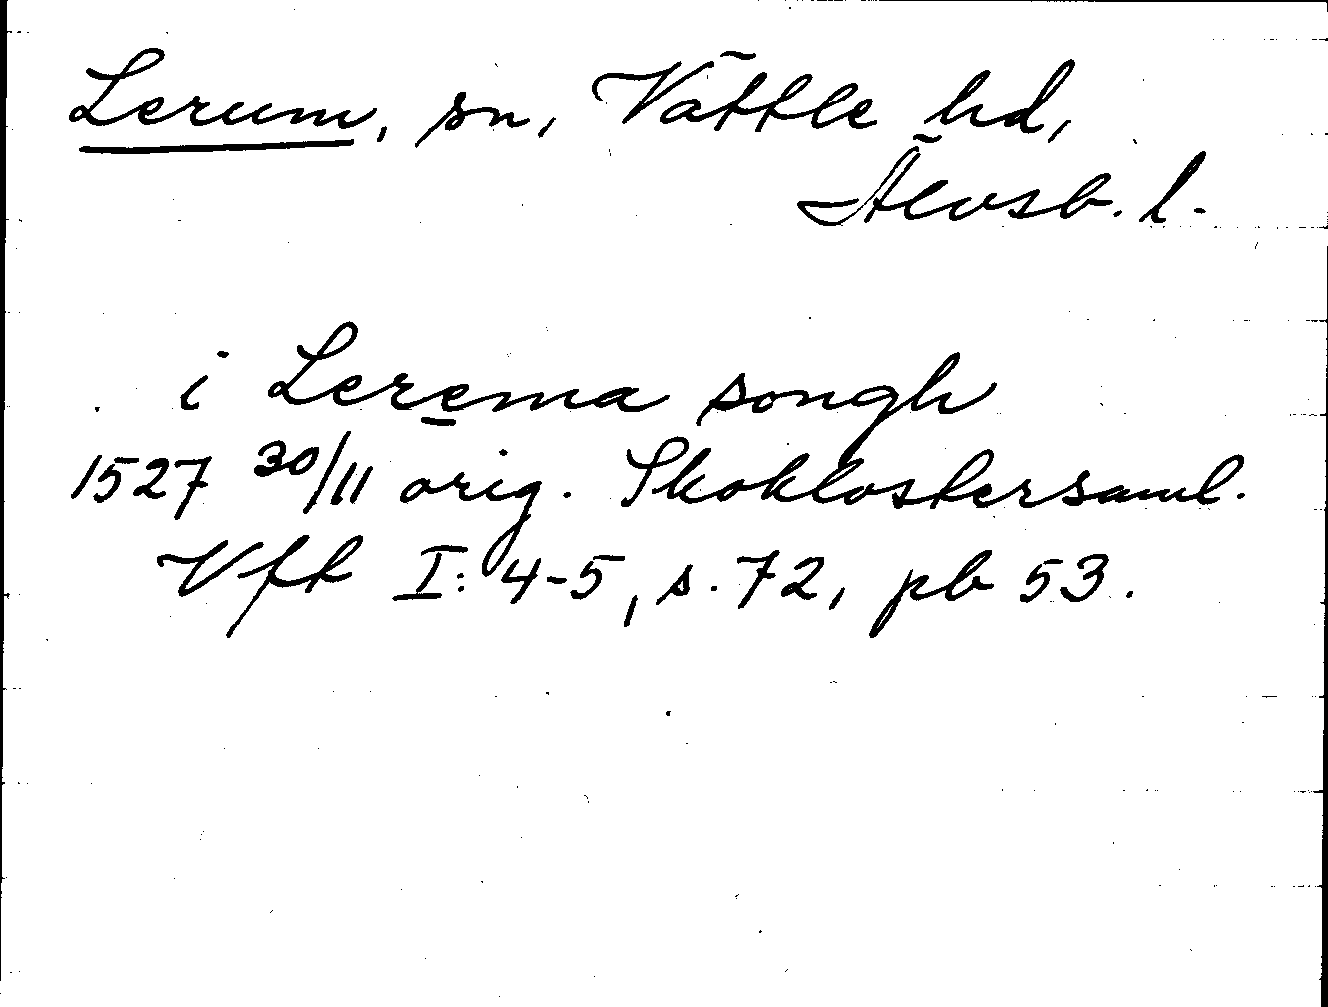 Lerum, sn, Vättle hd,
Älvsb. l.
i Lerema songh
1527 30/11 orig. Skoklostersaml.
Vft I: 4-5, s. 72, pb 53.